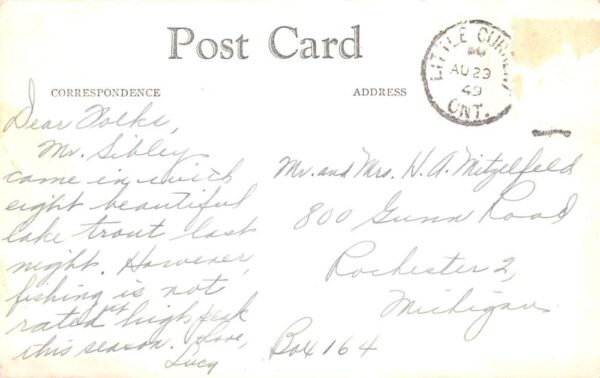 Post Card
CORRESPONDENCE
ADDRESS
LITTLE CURRENT
AU 29
49
ONT.
Dear Folks,
Mr. Sibley
came in with
eight beautiful
lake trout last
night. However,
fishing is not
rated high peak
this season. Love,
Lucy
Mr. and Mrs. H. A. Mitzelfeld
800 Gunn Road
Rochester 2,
Michigan
Box 164